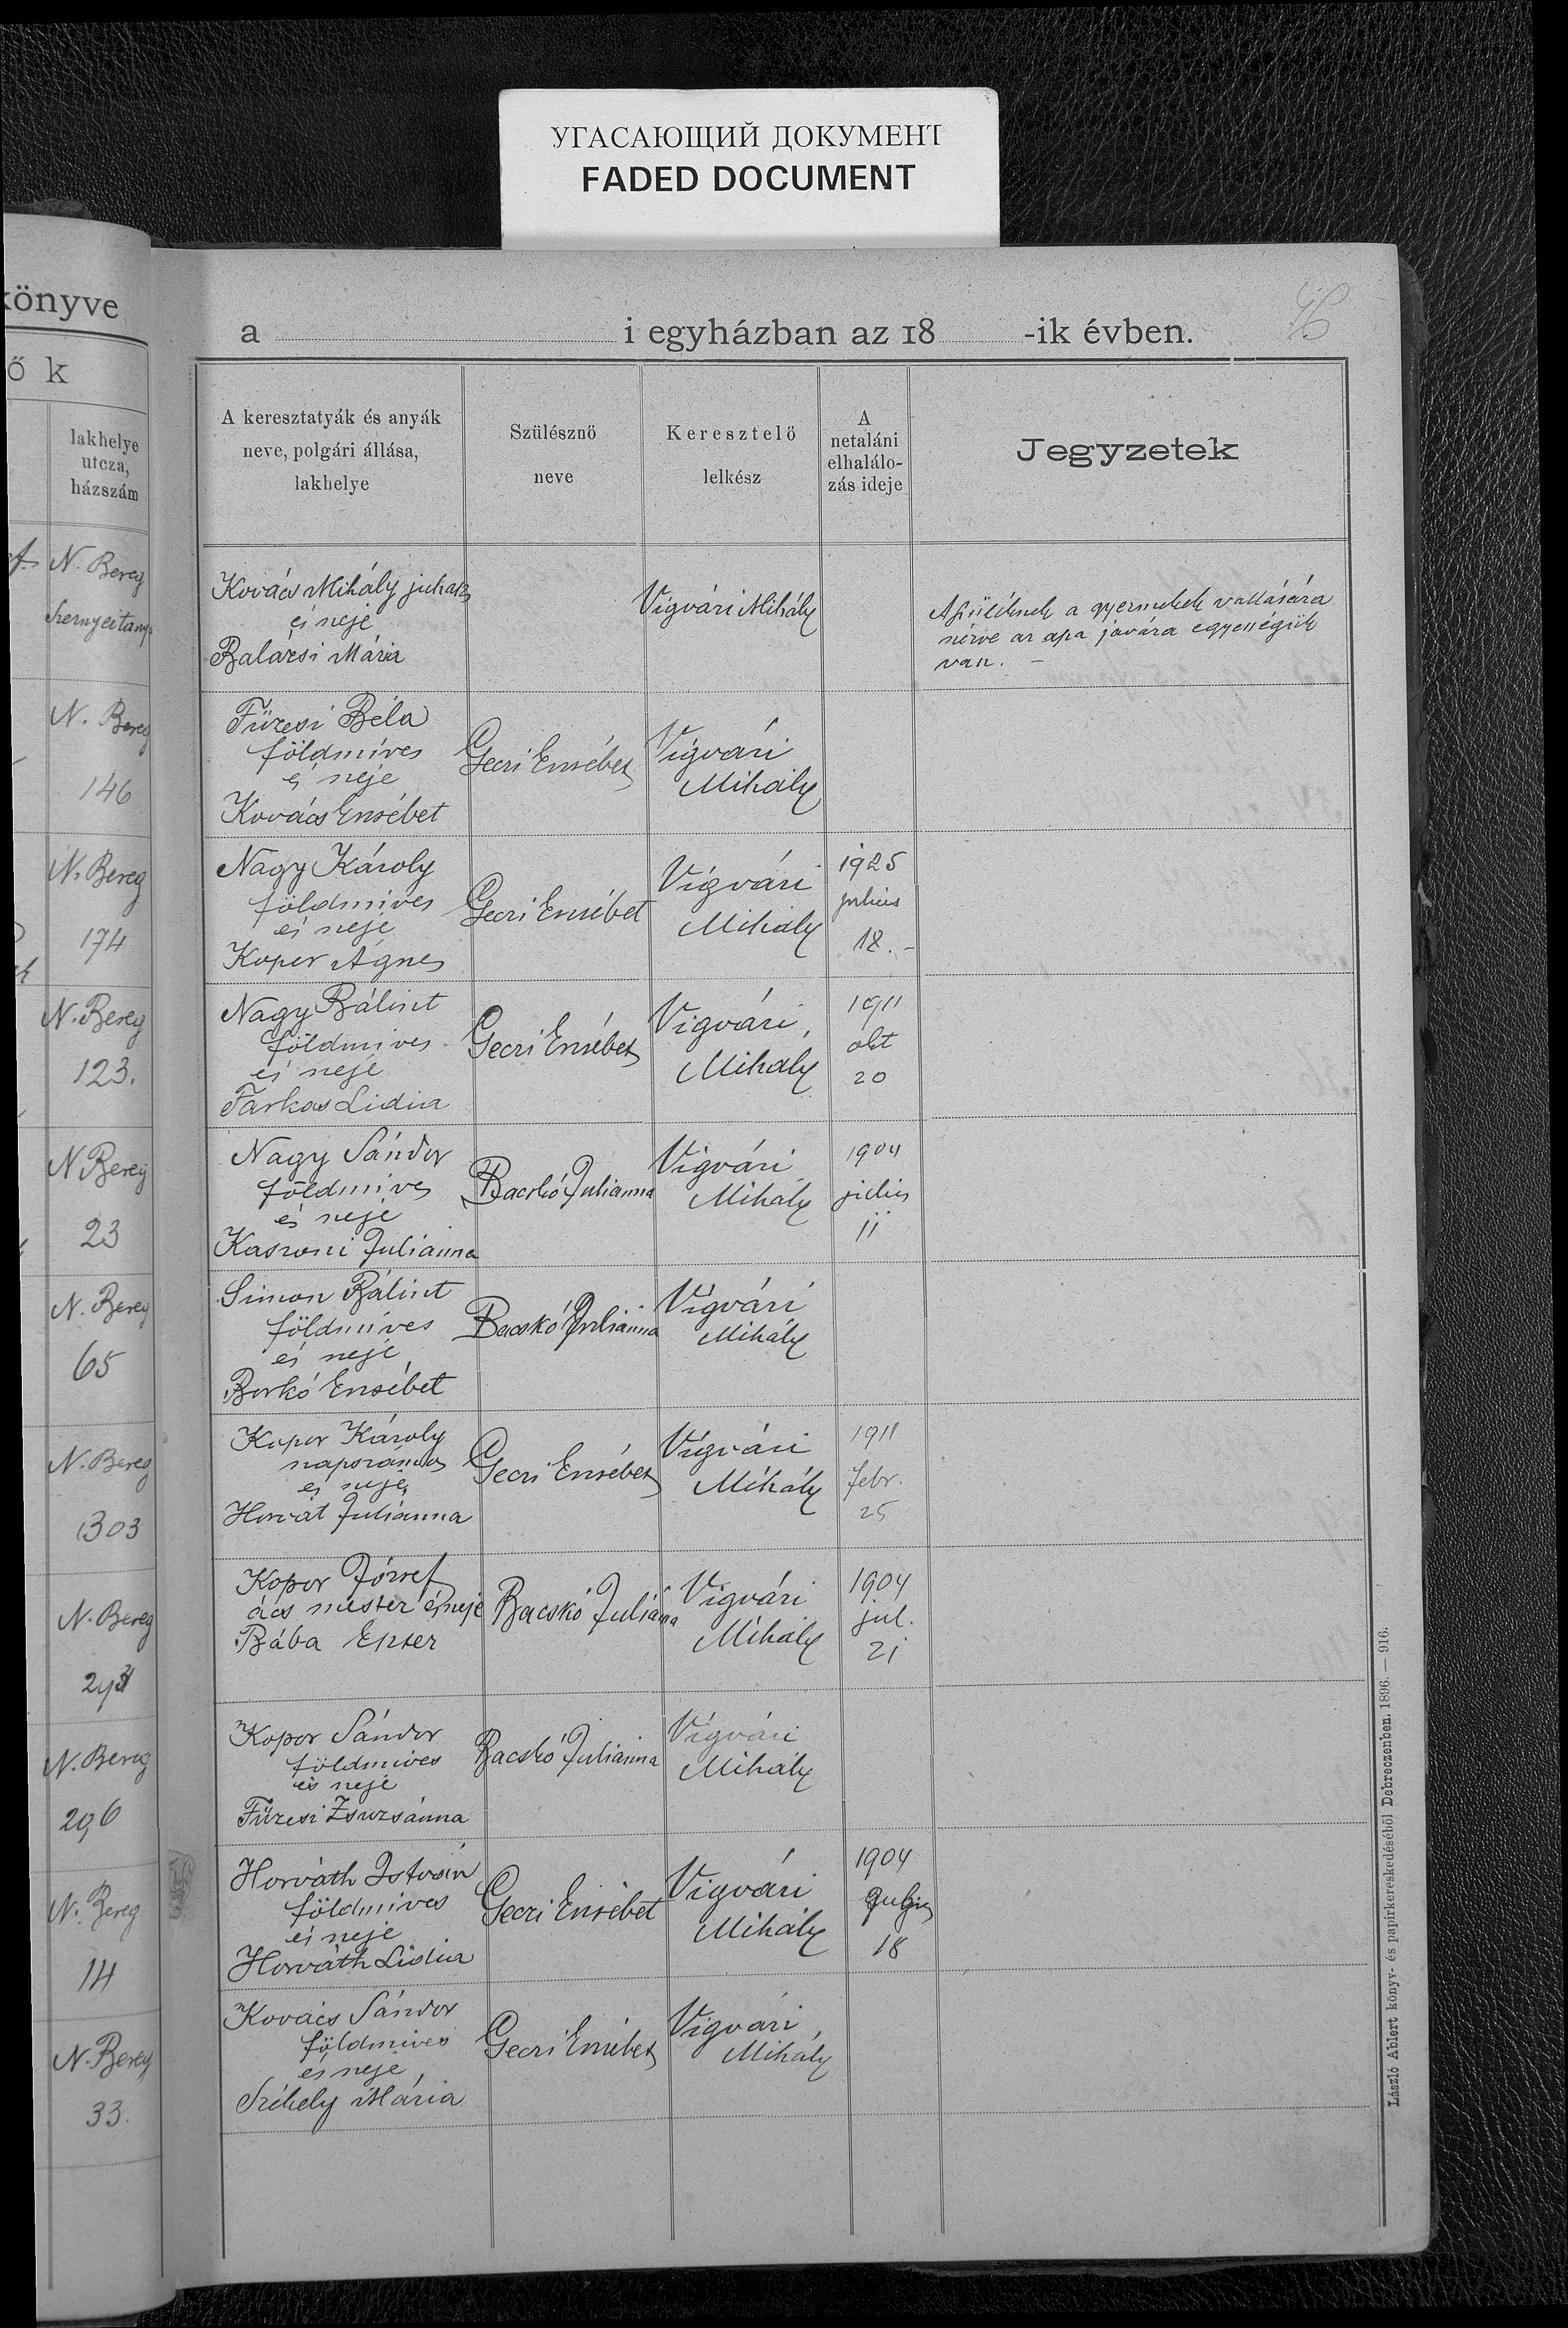 УГАСАЮЩИЙ ДОКУМЕНТ
FADED DOCUMENT
könyve
a i egyházban az 18 -ik évben.
ő k
lakhelye
utcza,
házszám
A keresztatyák és anyák
neve, polgári állása,
lakhelye
Szülésznö
neve
Keresztelö
lelkész
A
netaláni
elhalálo-
zás ideje
Jegyzetek
N. Bereg
Kovács Mihály juhasz
és neje
Balázsi Mária
Vígvári Mihály
a gyermekek vallására
nézve az apa javára egyességük
van. –
N. Bereg
146
Füzesi Béla
földmíves
és neje
Kovács Erzsébet
Geczi Erzsébet
Vígvári
Mihály
N. Bereg
174
Nagy Károly
földmíves
és neje
Koper Ágnes
Geczi Erzsébet
Vígvári
Mihály
1925
julius
18. –
N. Bereg
123.
Nagy Bálint
földmíves
és neje
Farkas Lidia
Geczi Erzsébet
Vígvári
Mihály
1911
okt
20
N Bereg
23
Nagy Sándor
földmíves
és neje
Kaszoni Julianna
Bacskó Julianna
Vígvári
Mihály
1904
julius
11
N. Bereg
65
Simon Bálint
földmíves
és neje
Borkó Erzsébet
Bacskó Julianna
Vígvári
Mihály
N. Bereg
303
Kopor Károly
napszámos
és neje
Horvát Juliánna
Geczi Erzsébet
Vígvári
Mihály
1911
febr.
25
N. Bereg
Kopor József
ács mester és neje
Bába Eszter
Bacskó Juliána
Vígvári
Mihály
1904
jul.
21
N. Bereg
296
Kopor Sándor
földmíves
és neje
Füzesi Zsuzsánna
Bacskó Julianna
Vígvári
Mihály
N. Bereg
14
Horváth István
földmíves
és neje
Horváth Lidia
Geczi Erzsébet
Vígvári
Mihály
1904
18
N. Bereg
33.
Kovács Sándor
földmíves
és neje
Székely Mária
Geczi Erzsébet
Vígvári
Mihály
László Ablert könyv- és papírkereskedéséből Debreczenben. 1896. — 916.